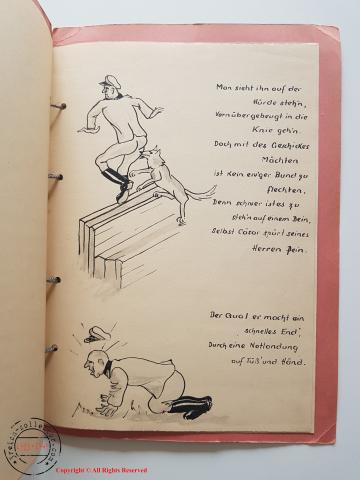 Man sieht ihn auf der
Hürde steh'n,
Vornübergebeugt in die
Knie geh'n.
Doch mit des Geschickes
Mächten
ist kein ew'ger Bund zu
flechten,
Denn schwer ist es zu
steh'n auf einem Bein,
Selbst Cäsar spürt seines
Herren Pein.
Der Qual er macht ein
schnelles End',
Durch eine Notlandung
auf Füß' und Händ.
Copyright © All Rights Reserved